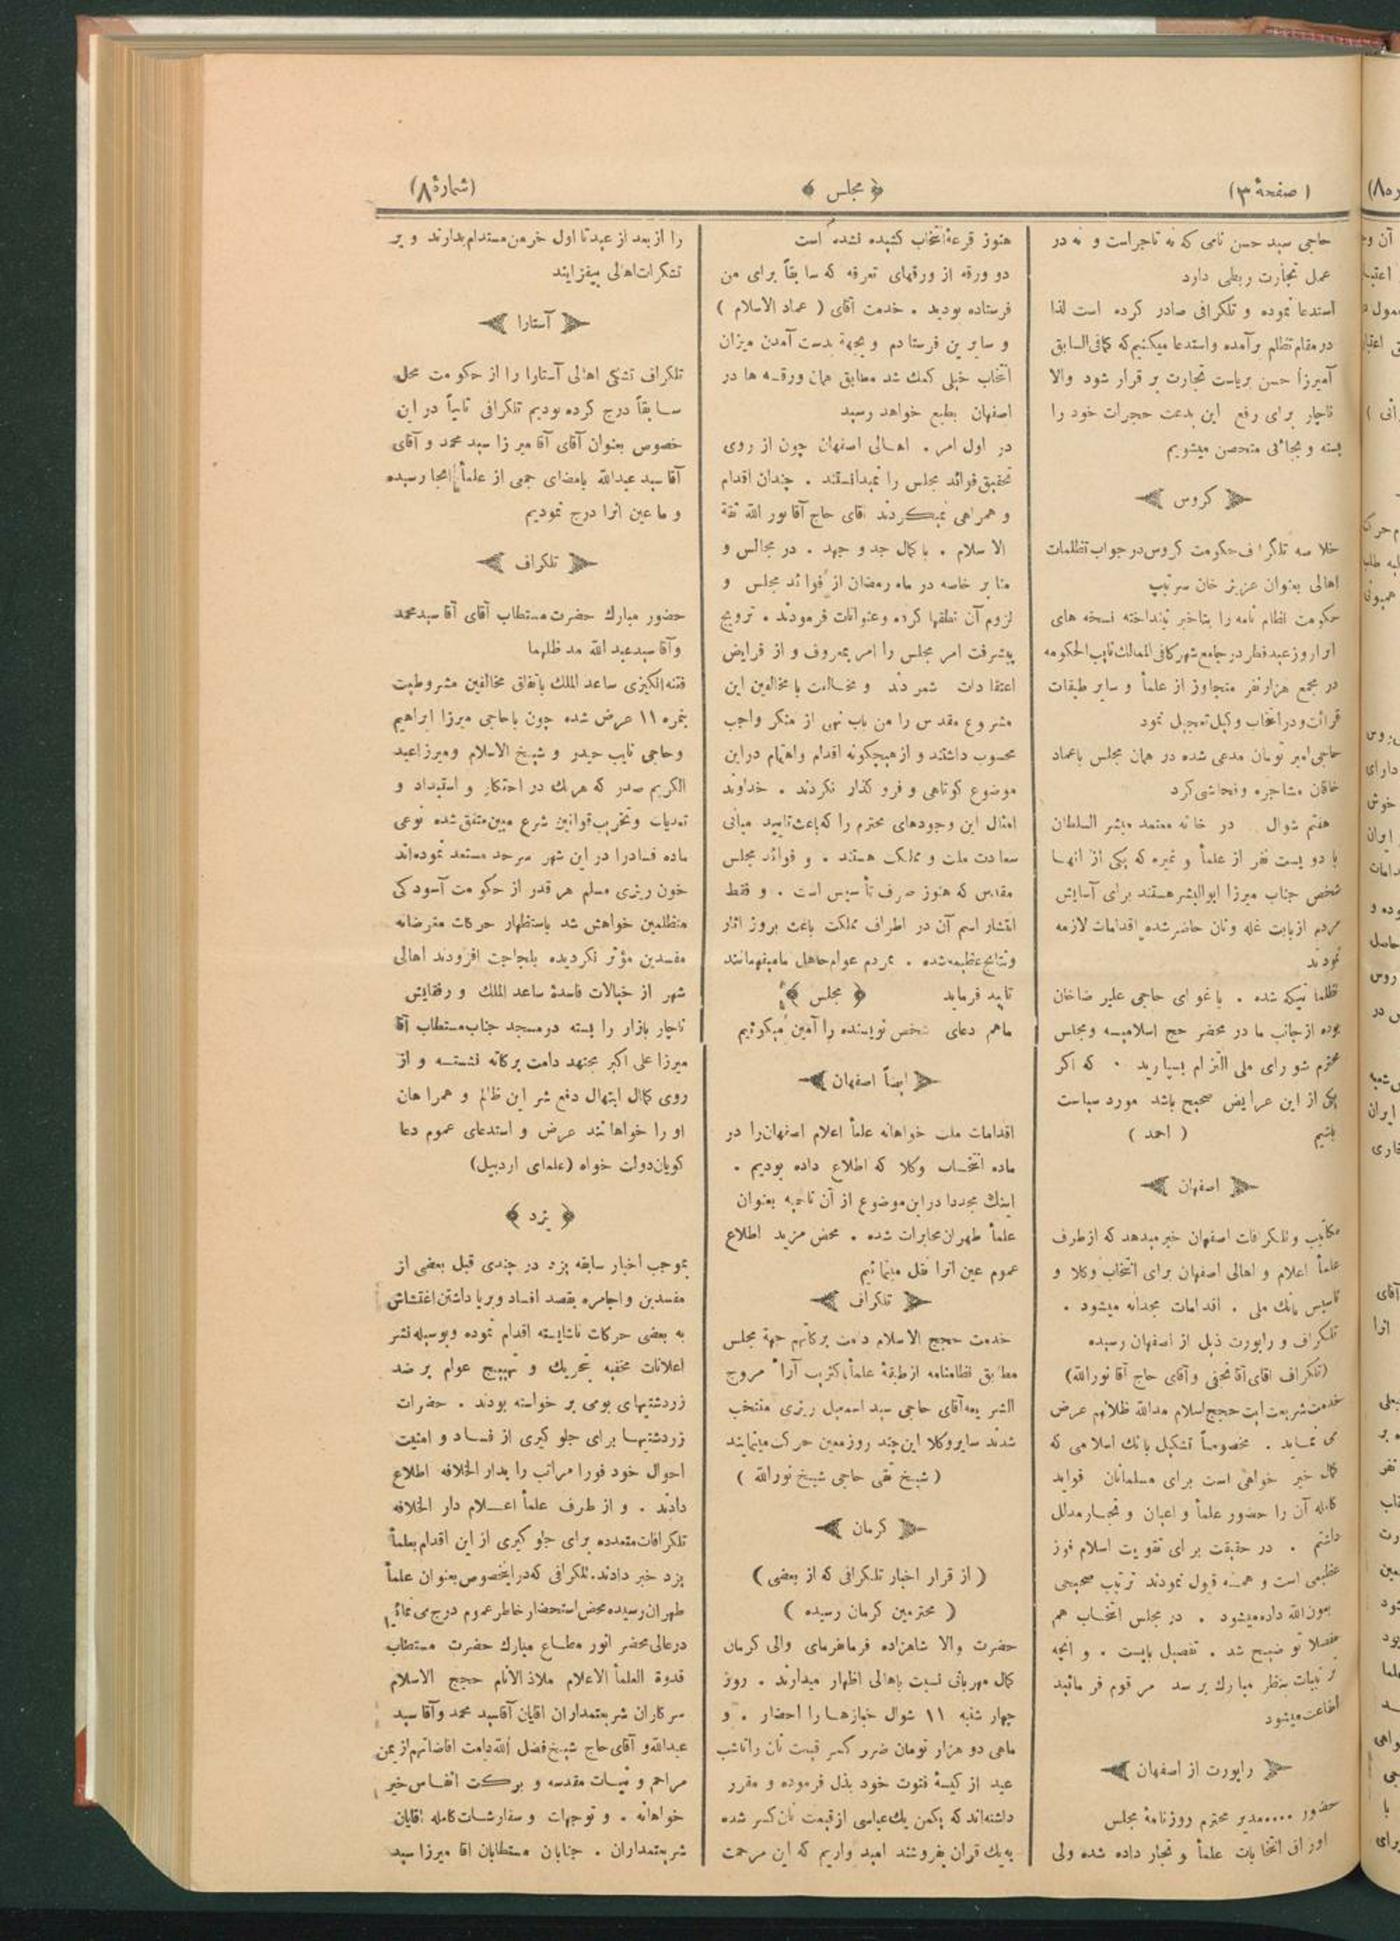 (صفحهٔ ۳)
﴿ مجلس ﴾
(شمارهٔ ۸)
حاجی سید حسن نامی که نه تاجر است و نه در
عمل تجارت ربطی دارد
استدعا نموده و تلکرافی صادر کرده است لذا
در مقام تظلم برآمده و استدعا میکنیم که کمافی السابق
آمیرزا حسن بریاست تجارت بر قرار شود والا
ناچار برای رفع این بدعت حجرات خود را
بسته و بجائی متحصن میشویم
کروس
خلاصه تلگراف حکومت کروس در جواب تظلمات
اهالی بعنوان عزیز خان سرتیپ
حکومت نظام نامه را بتاخیر نینداخته نسخه های
انرا روز عید فطر در جامع شهر کافی الممالک نایب الحکومه
در مجمع هزار نفر متجاوز از علمأ و سایر طبقات
قرائت و در انتخاب وکیل تعجیل نمود
حاجی امیر تومان مدعی شده در همان مجلس باعماد
خاقان مشاجره و فحاشی کرد
هفتم شوال در خانه معتمد مبشر السلطان
با دویست نفر از علمأ و غیره که یکی از انها
شخص جناب میرزا ابوالبشر هستند برای آسایش
مردم از بابت غله و نان حاضر شده اقدامات لازمه
نمودند
تظلما تیکه شده . باغوای حاجی علیرضاخان
بوده از جانب ما در محضر حج اسلامیه و مجلس
محترم شورای ملی التزام بسپارید . که اکر
یکی از این عرایض صحیح باشد مورد سیاست
باشیم ( احمد )
اصفهان
مکاتیب و تلکرافات اصفهان خبر میدهد که از طرف
علمأ اعلام و اهالی اصفهان برای انتخاب وکلا و
تاسیس بانک ملی . اقدامات مجدانه میشود .
تلکراف و راپورت ذیل از اصفهان رسیده
(تلکراف اقای آقا نجفی و آقای حاج آقا نورالله)
خدمت شریعت ایت حجج اسلام مدالله ظلالهم عرض
می نماید . مخصوصاً تشکیل بانک اسلامی که
کمال خیر خواهی است برای مسلمانان فواید
کامله آن را حضور علمأ و اعیان و تجار مدلل
داشتم . در حقیقت برای تقویت اسلام فوز
عظیمی است و همه قبول نمودند ترتیب صحیحی
بعون الله داده میشود . در مجلس انتخاب هم
مفصلا توضیح شد . تفصیل بایست . و انچه
ترتیبات بنظر مبارک برسد مرقوم فرمائید
اطاعت میشود
راپورت از اصفهان
حضور ..... مدیر محترم روزنامهٔ مجلس
اوراق انتخابات علمأ و تجار داده شده ولی
هنوز قرعهٔ انتخاب کشیده نشده است
دو ورقه از ورقهای تعرفه که سابقاً برای من
فرستاده بودید . خدمت آقای ( عماد الاسلام )
و سایرین فرستادم و بجههٔ بدست آمدن میزان
انتخاب خیلی کمک شد مطابق همان ورقه ها در
اصفهان بطبع خواهد رسید
در اول امر . اهالی اصفهان چون از روی
تحقیق فوائد مجلس را نمیدانستند . چندان اقدام
و همراهی نمیکردند اقای حاج آقا نور الله ثقة
الاسلام . با کمال جد و جهد . در مجالس و
منابر خاصه در ماه رمضان از فوائد مجلس و
لزوم آن نطقها کرده و عنوانات فرمودند . ترویج
پیشرفت امر مجلس را امر بمعروف و از فرایض
اعتقادات شمردند و مخالفت با مخالفین این
مشروع مقدس را من باب نهی از منکر واجب
محسوب داشتند و از هیچکونه اقدام و اهتمام در این
موضوع کوتاهی و فرو کذار نکردند . خداوند
امثال این وجودهای محترم را که باعث تایید مبانی
سعادت ملت و مملکت هستند . و فوائد مجلس
مقدس که هنوز صرف تأسیس است . و فقط
انتشار اسم آن در اطراف مملکت باعث بروز اثار
و نتایج عظیمه شده . بمردم عوام جاهل مامیفهمانند
تایید فرماید ﴿ مجلس ﴾
ماهم دعای شخص نویسنده را آمین میکوئیم
ایضاً اصفهان
اقدامات ملت خواهانه علمأ اعلام اصفهان را در
ماده انتخاب وکلا که اطلاع داده بودیم .
اینک مجددا در این موضوع از آن ناحیه بعنوان
علمأ طهران مخابرات شده . محض مزید اطلاع
عموم عین انرا نقل مینمائیم
تلکراف
خدمت حجج الاسلام دامت برکاتهم جههٔ مجلس
مطابق نظامنامه از طبقهٔ علمأ باکثریت آرا مروج
الشریعه آقای حاجی سید اسمعیل ریزی منتخب
شدند سایر وکلا این چند روز معین حرکت مینمایند
( شیخ تقی حاجی شیخ نورالله )
کرمان
( از قرار اخبار تلکرافی که از بعضی )
( محترمین کرمان رسیده )
حضرت والا شاهزاده فرمانفرمای والی کرمان
کمال مهربانی نسبت باهالی اظهار میدارند . روز
چهار شنبه ۱۱ شوال خبازها را احضار . و
ماهی دو هزار تومان ضرر کسر قیمت نان را تاشب
عید از کیسهٔ فتوت خود بذل فرموده و مقرر
داشته اند که یکمن یک عباسی از قیمت نان کسر شده
به یک قران بفروشند امید واریم که این مرحمت
را از بعد از عید تا اول خرمن مستدام بدارند و بر
تشکرات اهالی بیفزایند
آستارا
تلکراف تشکی اهالی آستارا را از حکومت محل
سابقاً درج کرده بودیم تلکرافی ثانیاً در این
خصوص بعنوان آقای آقا میرزا سید محمد و آقای
آقا سید عبدالله بامضای جمعی از علمأ انجا رسیده
و ما عین انرا درج نمودیم
تلکراف
حضور مبارک حضرت مستطاب آقای آقا سید محمد
و آقا سید عبد الله مد ظلهما
فتنه انکیزی ساعد الملک باتفاق مخالفین مشروطیت
بنمره ۱۱ عرض شده چون با حاجی میرزا ابراهیم
و حاجی نایب حیدر و شیخ الاسلام و میرزا عبد
الکریم صدر که هریک در احتکار و استبداد و
تعدیات و تخریب قوانین شرع مبین متفق شده نوعی
ماده فساد را در این شهر سرحد مستعد نموده اند
خون ریزی مسلم هر قدر از حکومت آسودکی
متظلمین خواهش شد باستظهار حرکات مغرضانه
مفسدین مؤثر نکردیده بلجاجت افزودند اهالی
شهر از خیالات فاسدهٔ ساعد الملک و رفقایش
ناچار بازار را بسته در مسجد جناب مستطاب آقا
میرزا علی اکبر مجتهد دامت برکاته نشسته و از
روی کمال ابتهال دفع شر این ظالم و همراهان
او را خواهانند عرض و استدعای عموم دعا
کویان دولت خواه (علمای اردبیل)
﴿ یزد ﴾
بموجب اخبار سابقه یزد در چندی قبل بعضی از
مفسدین و اجامره بقصد افساد و برپا داشتن اغتشاش
به بعضی حرکات ناشایسته اقدام نموده و بوسیله نشر
اعلانات مخفیه بتحریک و تهییج عوام بر ضد
زردشتیهای بومی بر خواسته بودند . حضرات
زردشتیها برای جلو کیری از فساد و امنیت
احوال خود فورا مراتب را بدار الخلافه اطلاع
دادند . و از طرف علمأ اعلام دار الخلافه
تلکرافات متعدده برای جلو کیری از این اقدام بعلمأ
یزد خبر دادند . تلکرافی که در اینخصوص بعنوان علمأ
طهران رسیده محض استحضار خاطر عموم درج می نمائیم
در عالی محضر انور مطاع مبارک حضرت مستطاب
قدوة العلمأ الاعلام ملاذ الانام حجج الاسلام
سرکاران شریعتمداران اقایان آقا سید محمد و آقا سید
عبدالله و آقای حاج شیخ فضل الله دامت افاضاتهم از یمن
مراحم و نیات مقدسه و برکت انفاس خیر
خواهانه . و توجهات و سفارشات کامله اقایان
شریعتمداران . جنابان مستطابان اقا میرزا سید